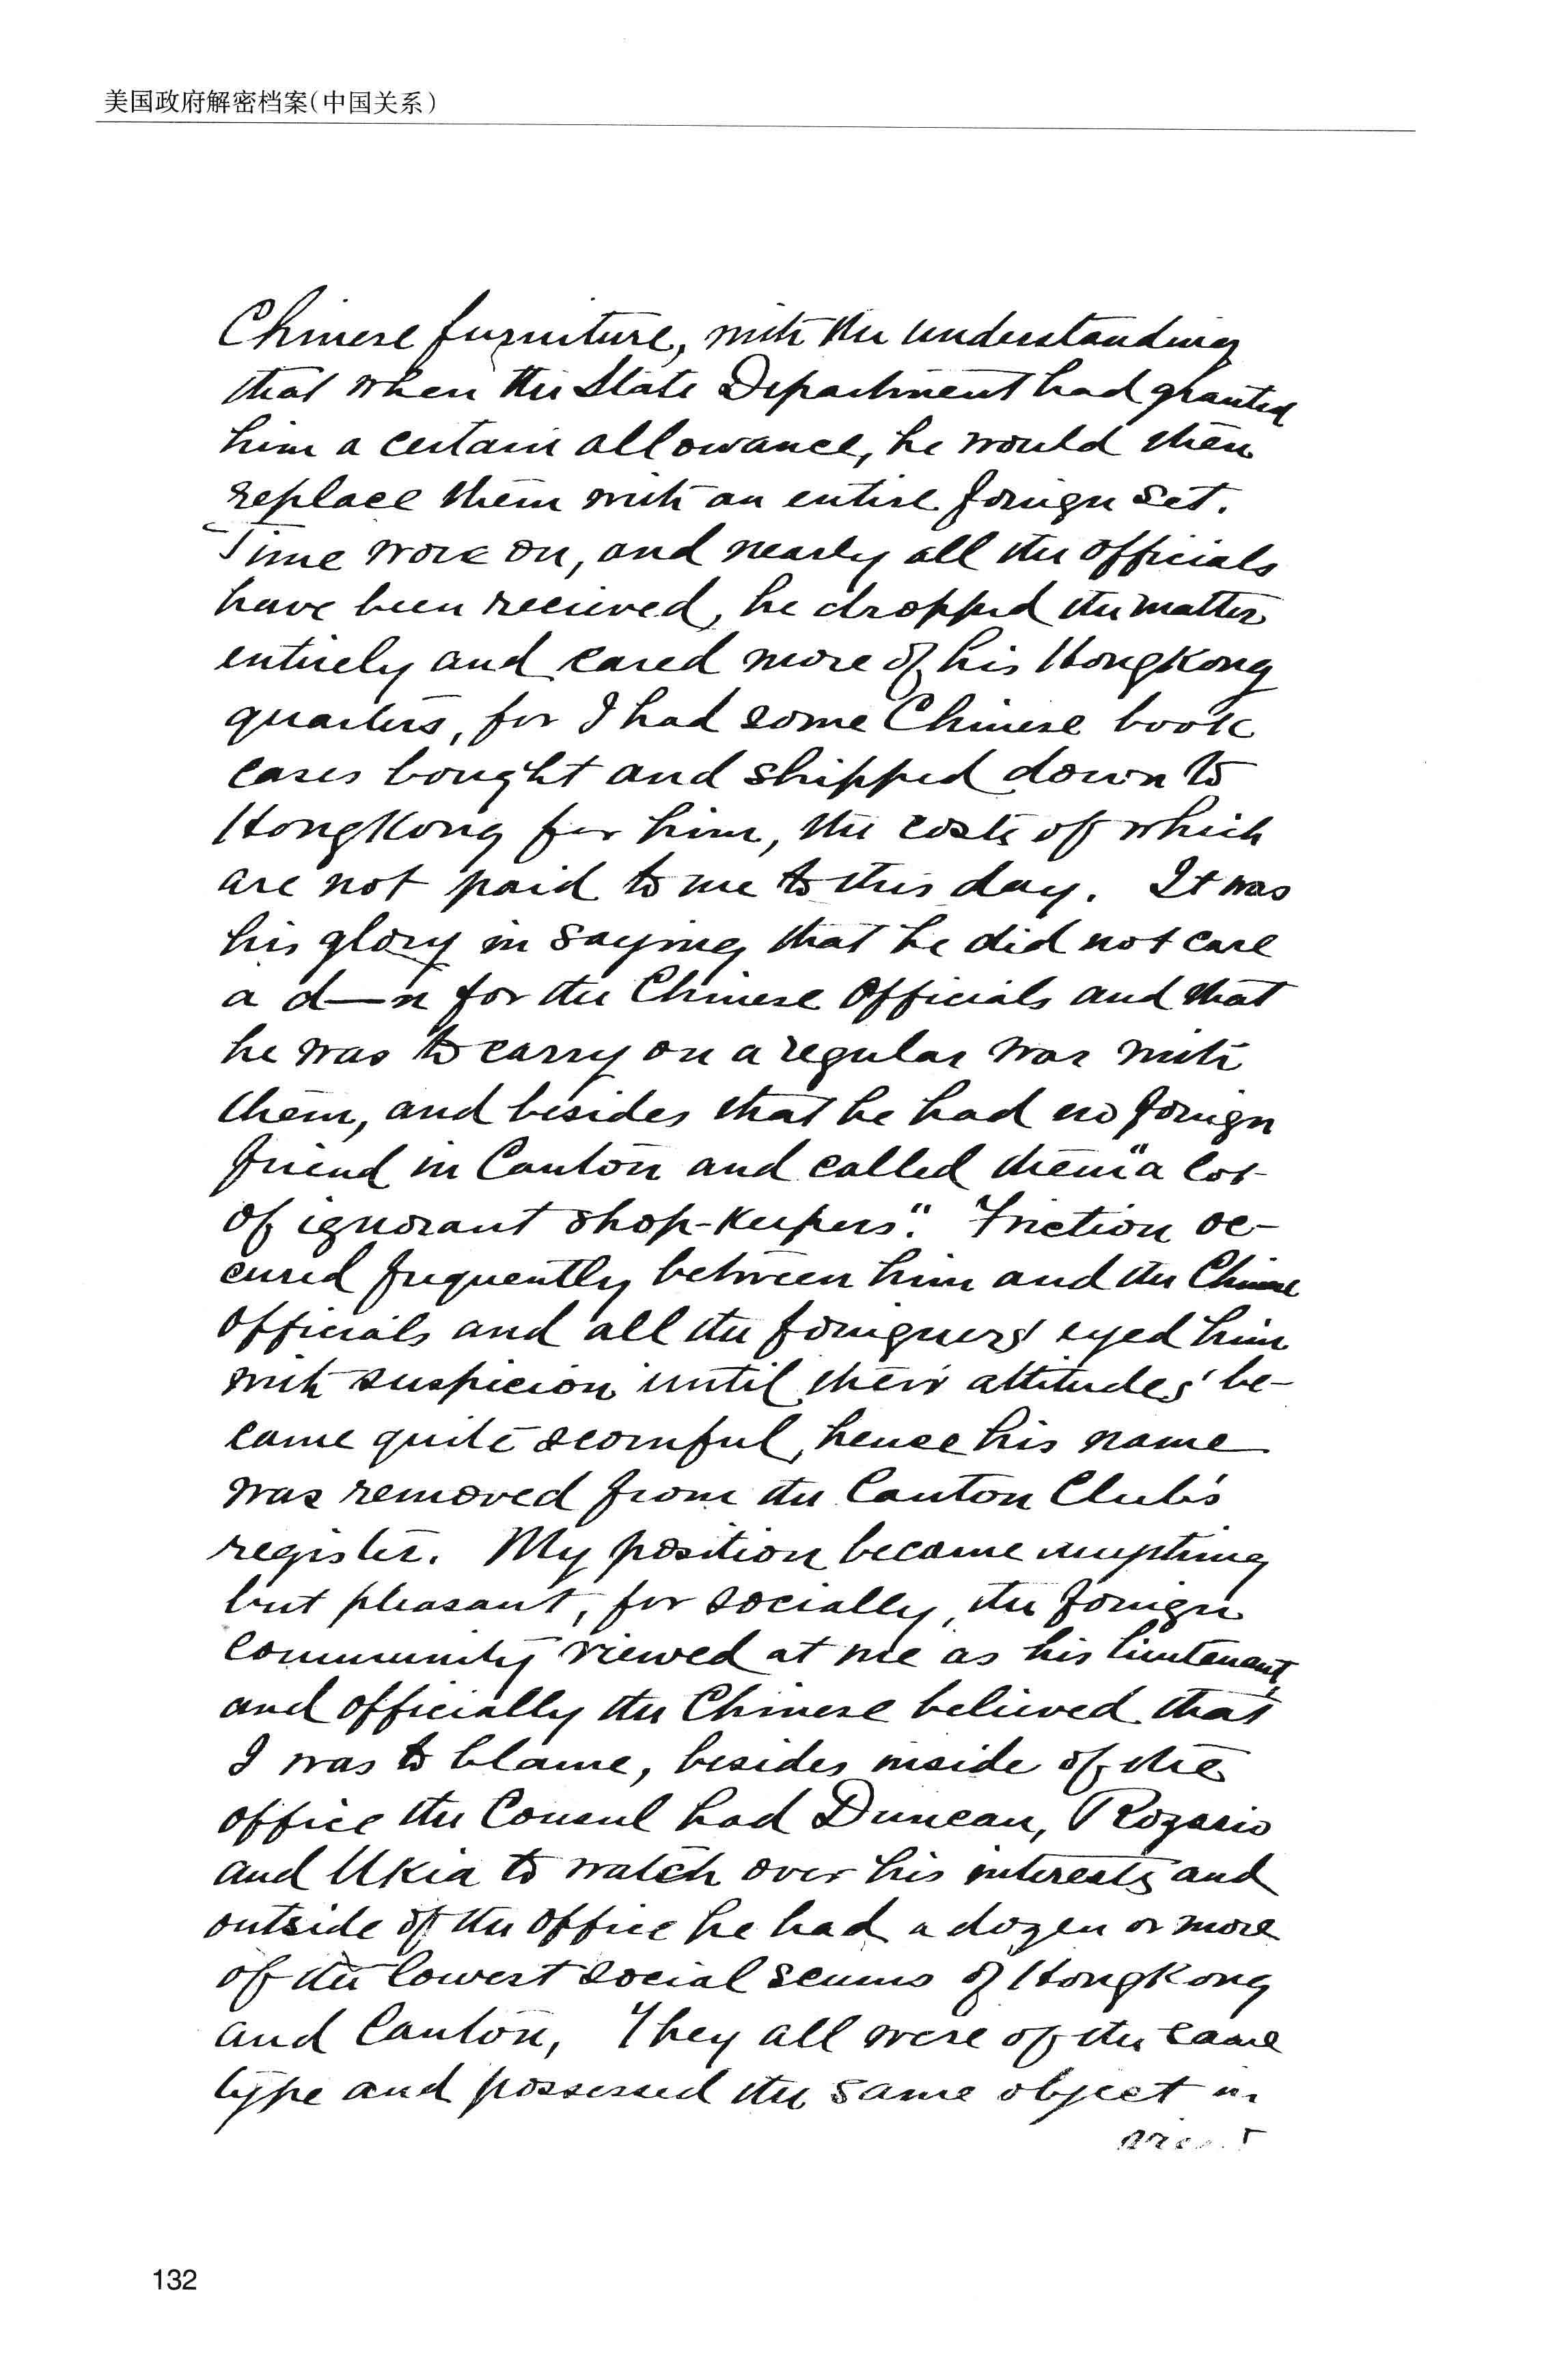 美国政府解密档案(中国关系)
Chinese furniture, with the understanding
that when the State Department had granted
him a certain allowance, he would then
replace them with an entire foreign set.
Time wore on, and nearly all the officials
have been recieved, he dropped the matter
entirely and cared more of his Hongkong
quarters, for I had some Chinese book
cases bought and shipped down to
HongKong for him, the costs of which
are not paid to me to this day. It was
his glory in saying that he did not care
a d—n for the Chinese Officials and that
he was to carry on a regular war with
them, and besides that he had no foreign
friend in Canton and called them "a lot
of ignorant shop-keepers". Friction oc-
cured frequently between him and the Chinese
Officials and all the foreigners eyed him
with suspicion until their attitudes be-
came quite scornful, hence his name
was removed from the Canton Club's
register. My position became
but pleasant, for socially, the foreign
community viewed at me as his lieutenant,
and officially the Chinese believed that
I was to blame, besides inside of the
office the Consul had Duncan, Rozario
and Ukia to watch over his interests and
outside of the office he had a dozen or more
of the lowest social scums of HongKong
and Canton, They all were of the same
type and possessed the same object in
132